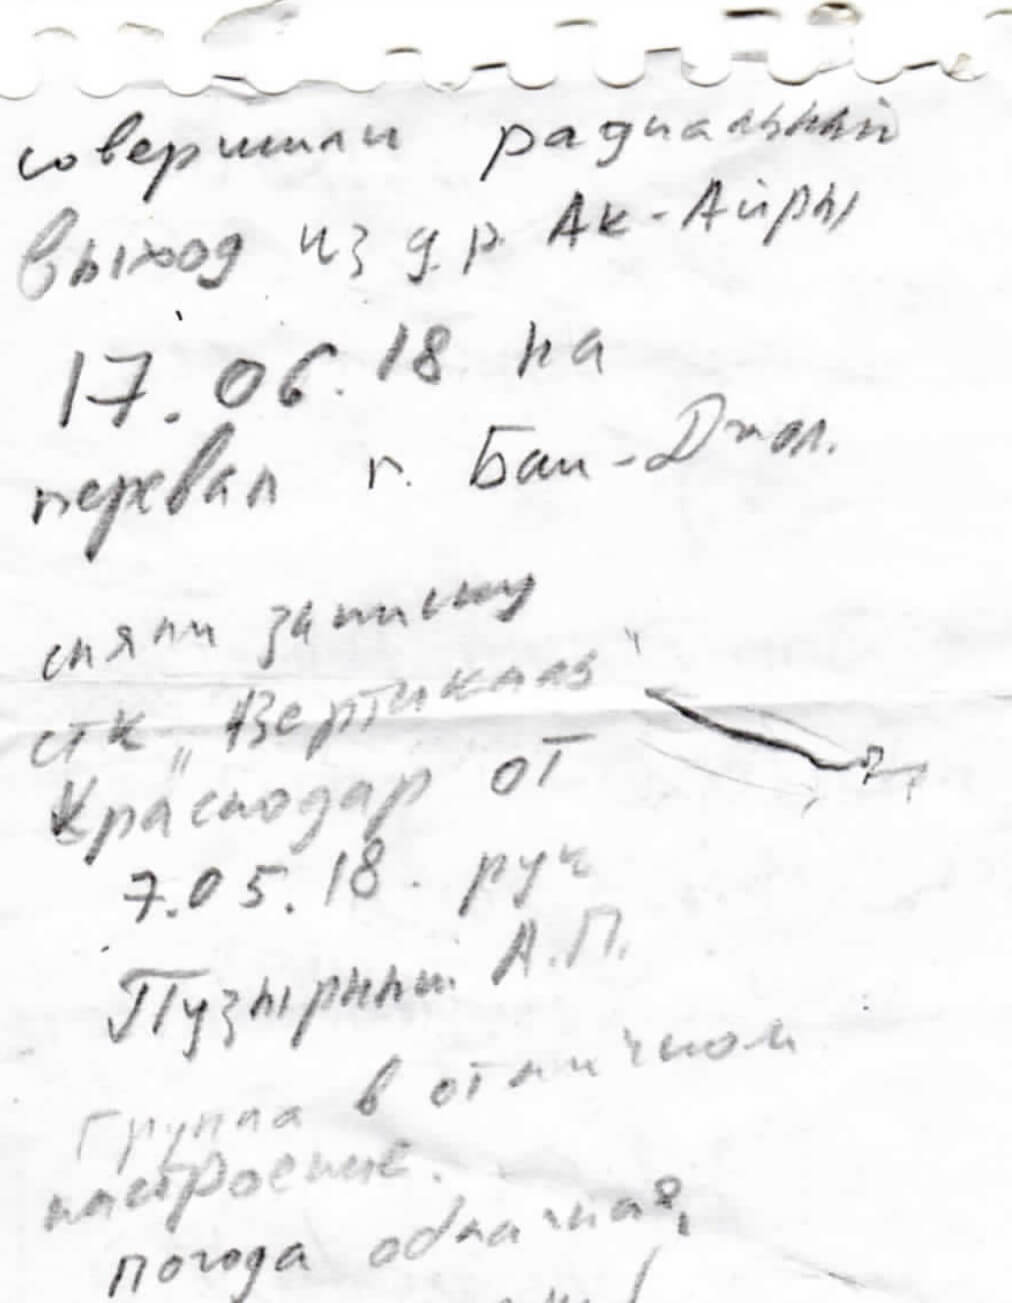 совершили радиальный
выход из д.р. Ак-Айры
17.06.18 на
перевал г. Баш-Джол.
сняли записку
стк "Вертикаль"
Краснодар от
7.05.18. рук
А.П.
Группа в отличном
настроение.
погода облачная,